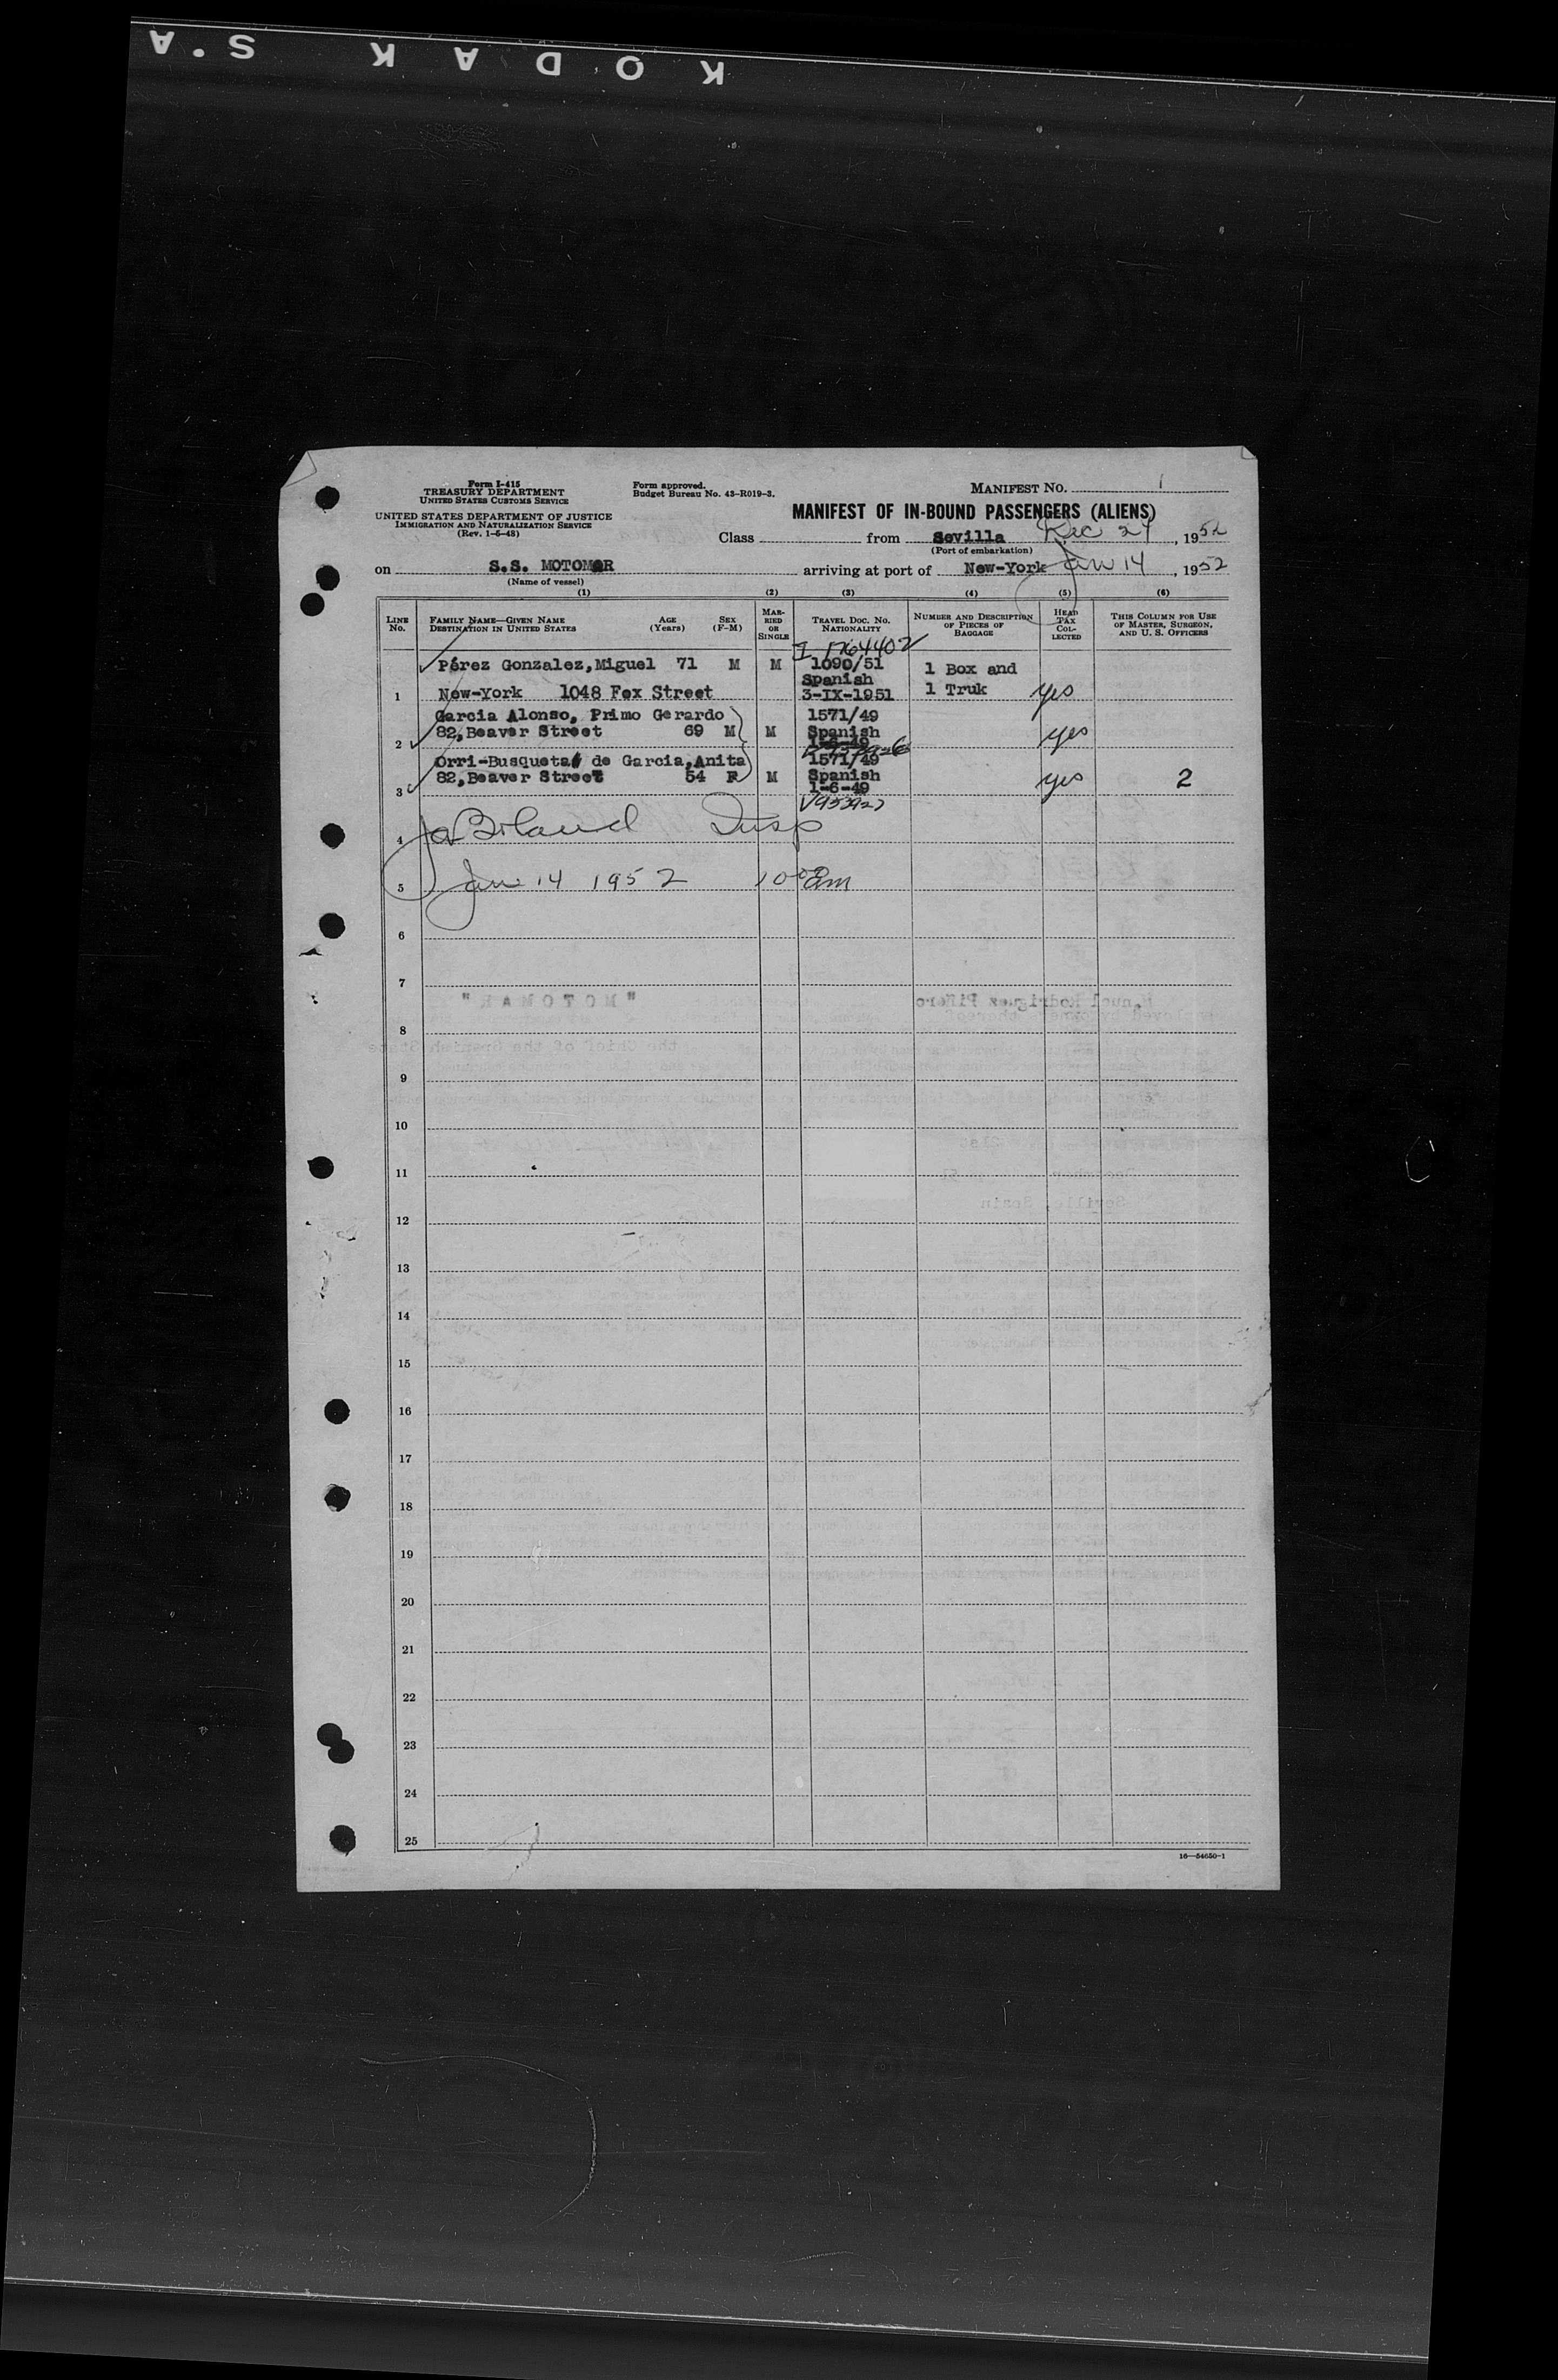 KODAK S.A
Form I-415
TREASURY DEPARTMENT
UNITED STATES CUSTOMS SERVICE
UNITED STATES DEPARTMENT OF JUSTICE
IMMIGRATION AND NATURALIZATION SERVICE
(Rev. 1-6-48)
Form approved.
Budget Bureau No. 43-R019-3.
MANIFEST NO. 1
MANIFEST OF IN-BOUND PASSENGERS (ALIENS)
Class from Sevilla Dec 24, 19
(Port of embarkation)
on S.S. MOTOMAR arriving at port of New-York Jan 14, 1952
(Name of vessel)
(1) (2) (3) (4) (5) (6)
LINE NO. FAMILY NAME—GIVEN NAME DESTINATION IN UNITED STATES AGE (Years) SEX (F-M) MARRIED OR SINGLE TRAVEL DOC. NO. NATIONALITY NUMBER AND DESCRIPTION OF PIECES OF BAGGAGE HEAD TAX COLLECTED THIS COLUMN FOR USE OF MASTER, SURGEON, AND U. S. OFFICERS
I 1764402
Pérez Gonzalez, Miguel 71 M M 1090/51 1 Box and
Spanish
1 New-York 1048 Fox Street 3-IX-1951 1 Truk yes
Garcia Alonso, Primo Gerardo 1571/49
82, Beaver Street 69 M M Spanish yes
2 1-6-49
Orri-Busqueta de Garcia, Anita 1571/49
82, Beaver Street 54 F M Spanish yes 2
3 1-6-49
V953927
4 Insp
5 Jan 14 1952 10 00 am
6
7
"MOTOMAR" Manuel Rodriguez Piñero
8
the Chief of the Spanish State
9
10
11
Seville, Spain
12
13
14
15
16
17
18
19
20
21
22
23
24
25
16—54650-1